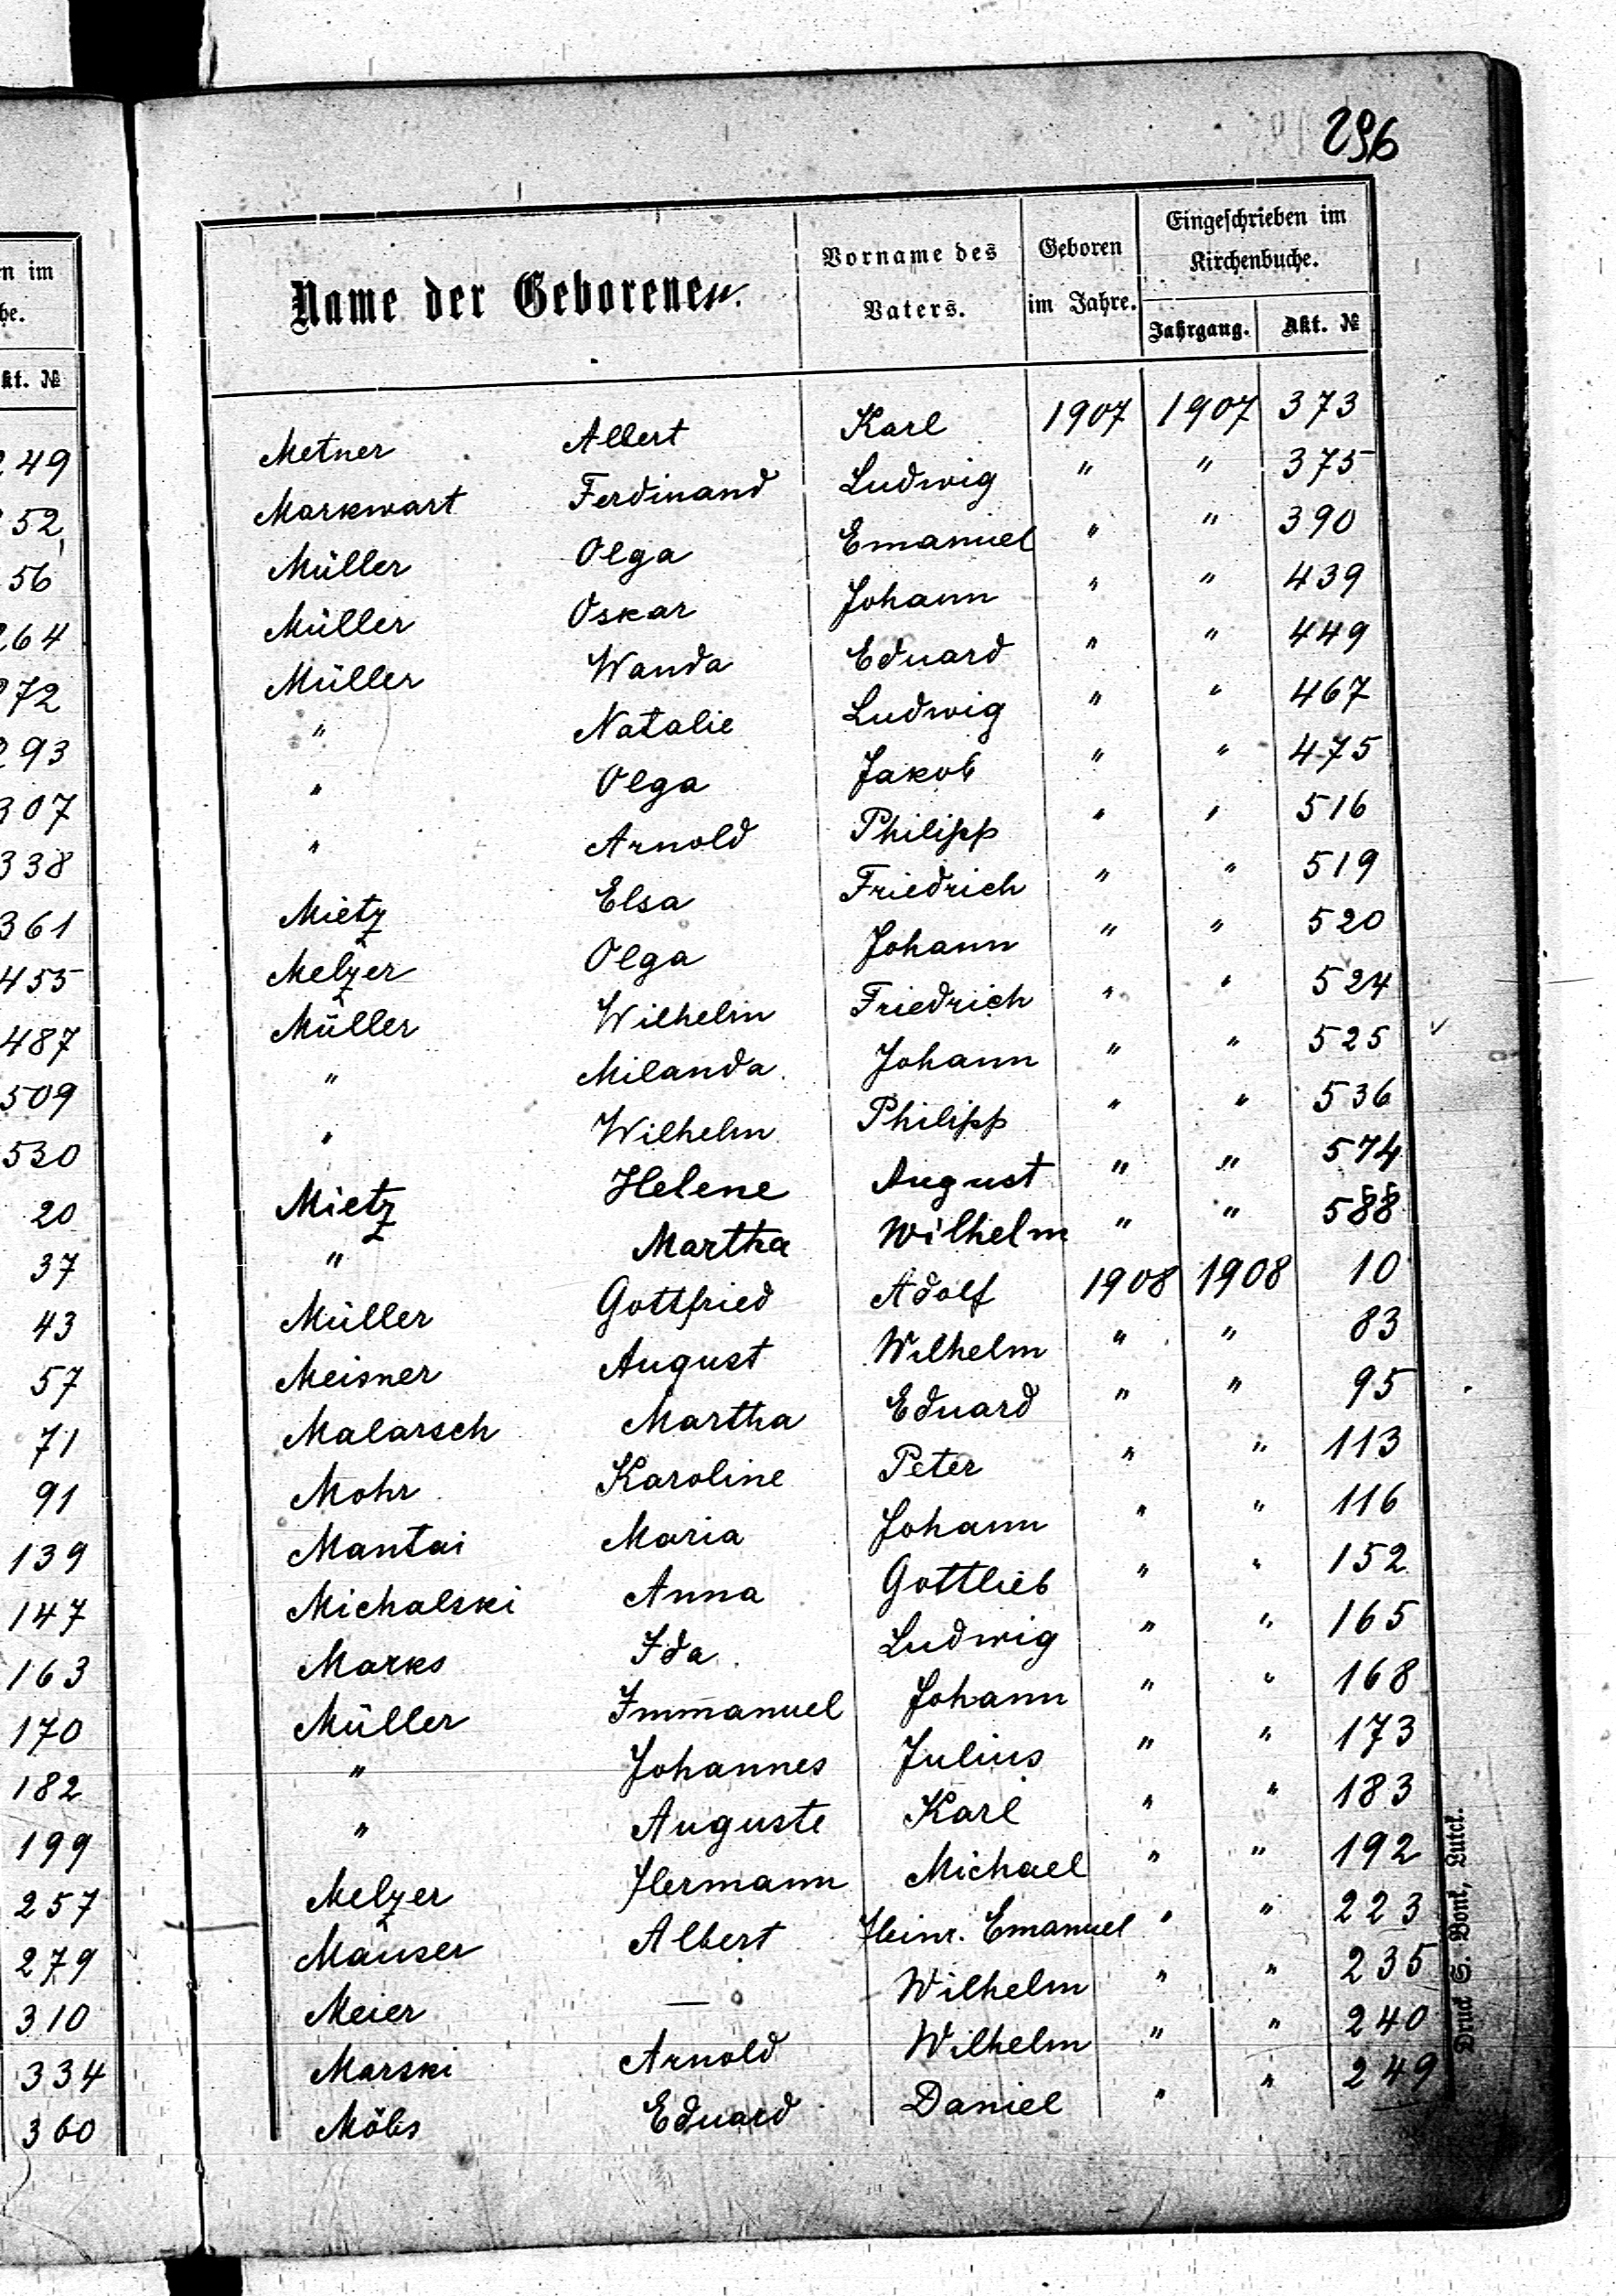 296
n im
he.
kt. №
249
252
56
264
272
293
307
338
361
455
487
509
530
20
37
43
57
71
91
139
147
163
170
182
199
257
279
310
334
360
Name der Geborenen. Vorname des Vaters. Geboren im Jahre. Eingeschrieben im Kirchenbuche.
Jahrgang. Akt. №
Metner Albert Karl 1907 1907 373
Markwart Ferdinand Ludwig " " 375
Müller Olga Emanuel " " 390
Müller Oskar Johann " " 439
Müller Wanda Eduard " " 449
" Natalie Ludwig " " 467
" Olga Jakob " " 475
" Arnold Philipp " " 516
Mietz Elsa Friedrich " " 519
Melzer Olga Johann " " 520
Müller Wilhelm Friedrich " " 524
" Milanda Johann " " 525
" Wilhelm Philipp " " 536
Mietz Helene August " " 574
" Martha Wilhelm " " 588
Müller Gottfried Adolf 1908 1908 10
Meisner August Wilhelm " " 83
Malarsch Martha Eduard " " 95
Mohr Karoline Peter " " 113
Mantai Maria Johann " " 116
Michalski Anna Gottlieb " " 152
Marks Ida Ludwig " " 165
Müller Immanuel Johann " " 168
" Johannes Julius " " 173
" Auguste Karl " " 183
Melzer Hermann Michael " " 192
Mauser Albert Heinr. Emanuel " " 223
Meier — Wilhelm " " 235
Marski Arnold Wilhelm " " 240
Möbs Eduard Daniel " " 249
Druck S. Bonk, Lutck.